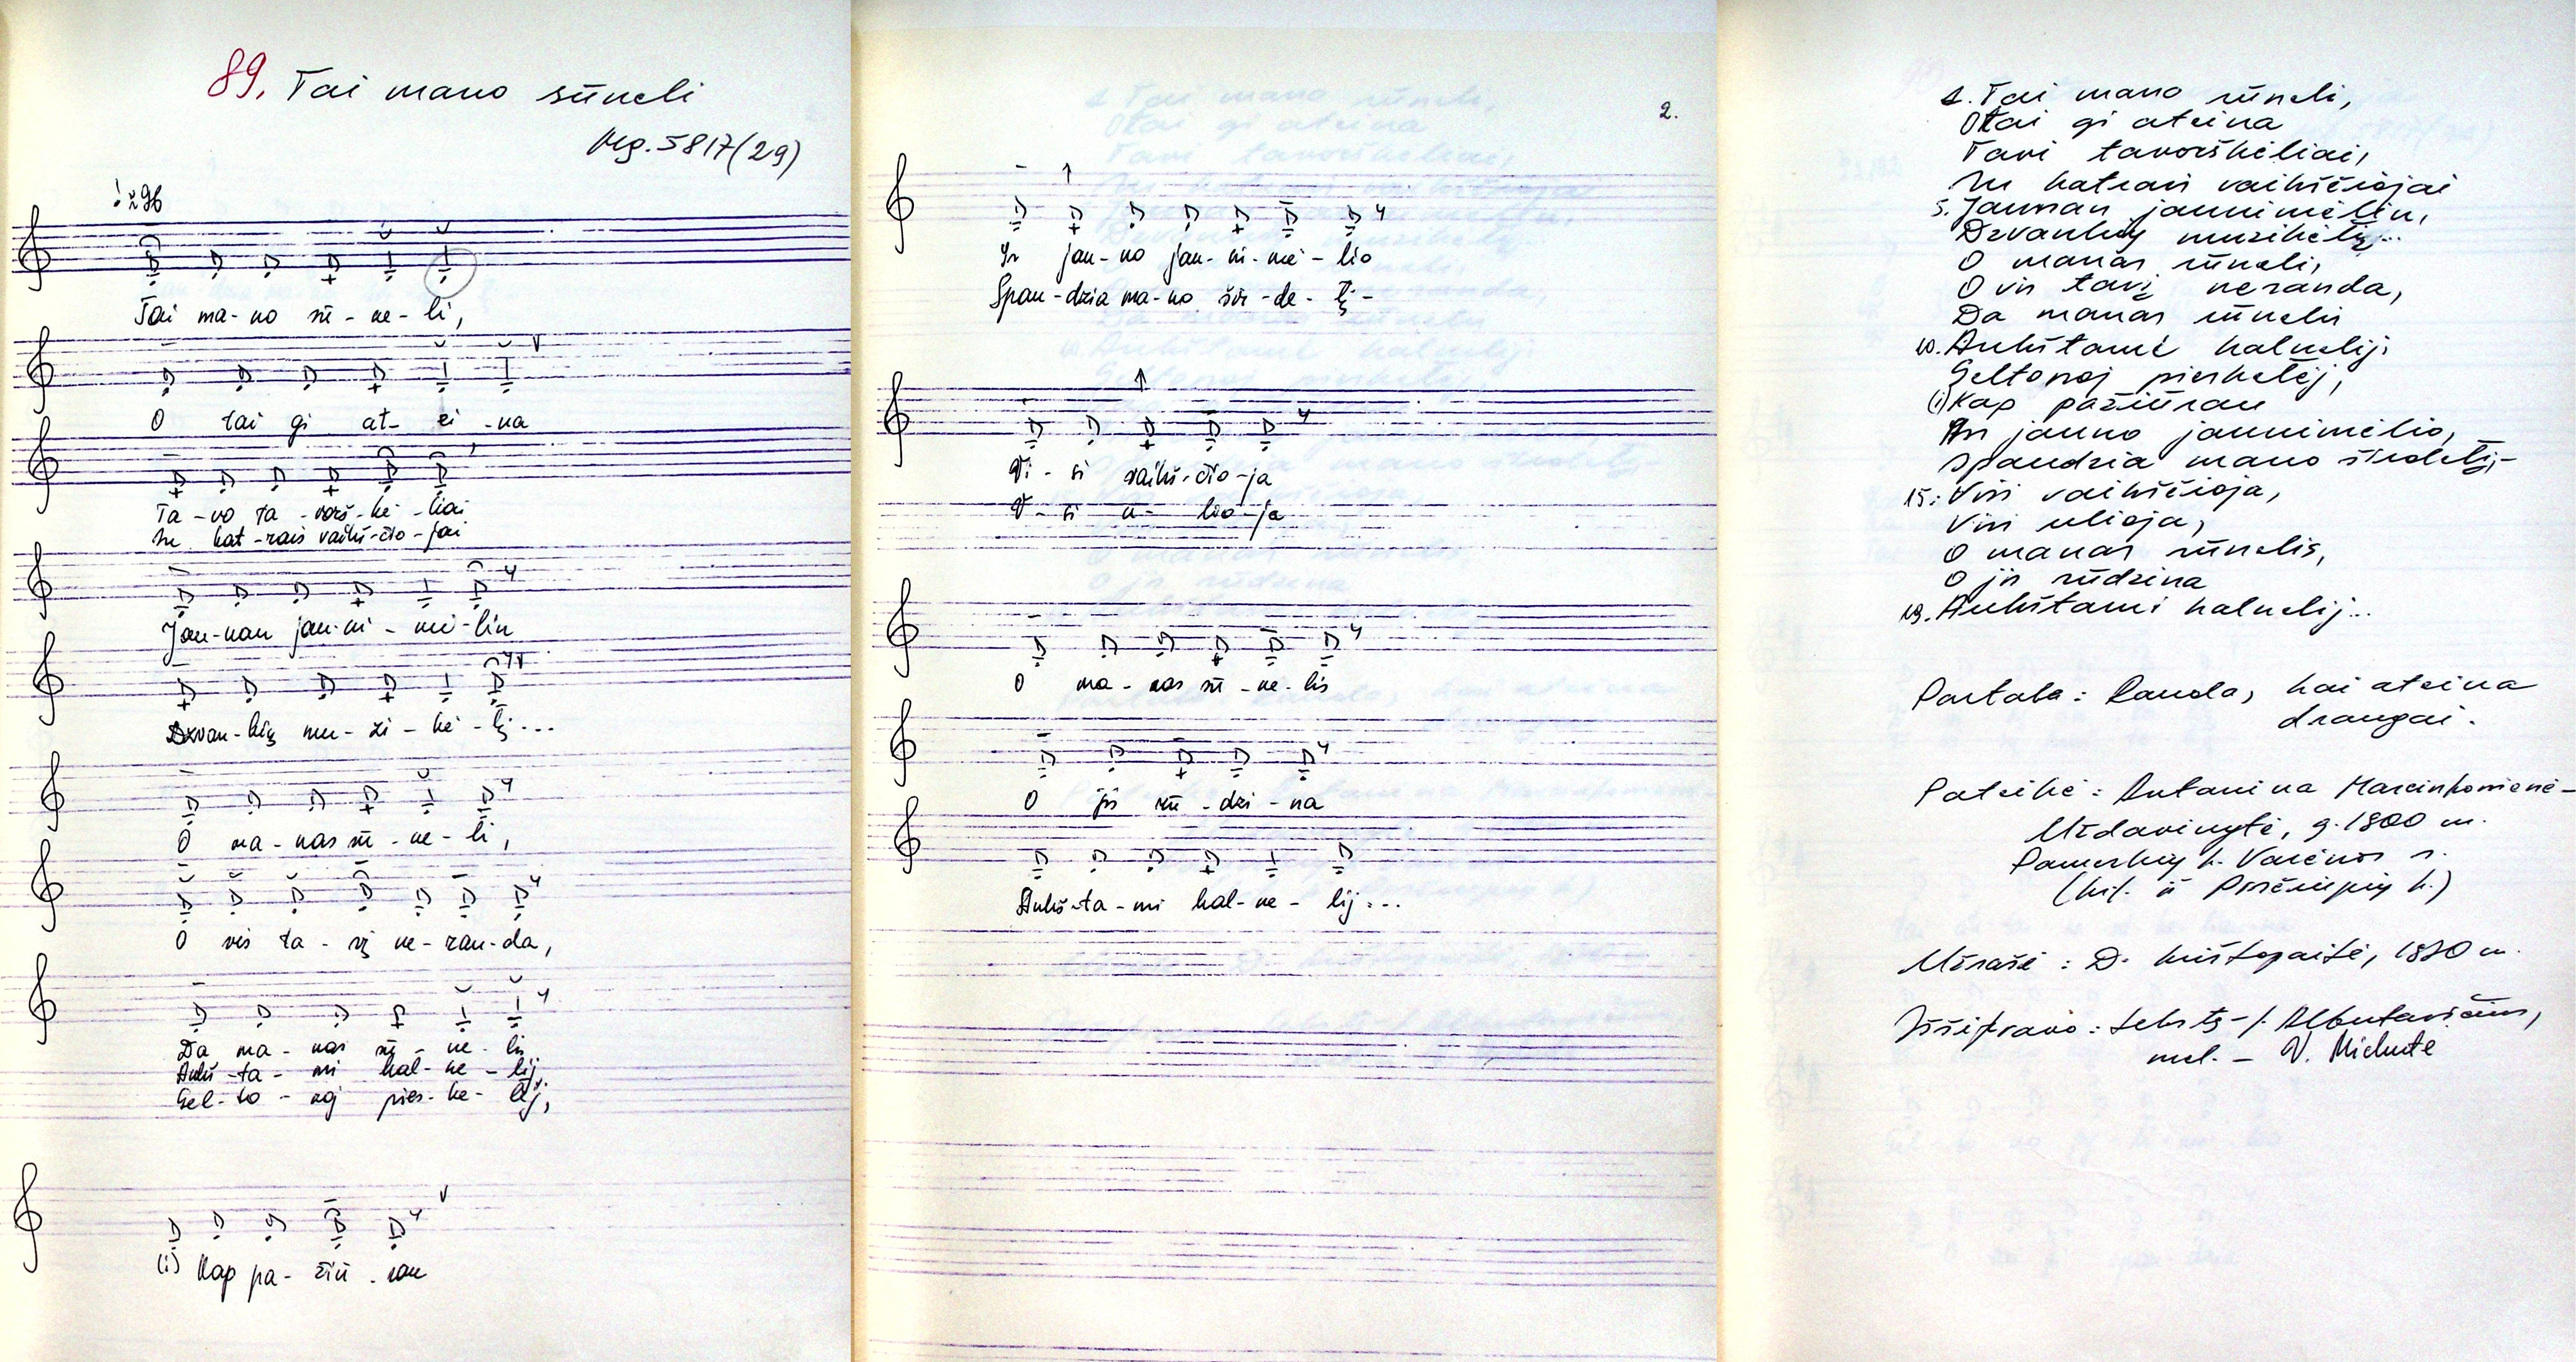 89. Tai mano sūneli
Mg. 5817(29)
♩≈96
Tai ma-no sū-ne-li,
O tai gi at-ei-na
Ta-vo ta-vorš-kė-liai
Su kat-rais vaikš-čio-jai
Jau-nan jau-ni-mė-lin
Dzvan-kių mu-zi-kė-lį...
O ma-nas sū-ne-li,
O vis ta-vį ne-ran-da,
Da ma-nas sū-ne-lis
Aukš-ta-mi kal-ne-lij,
Gel-to-noj pies-ke-lėj,
(i) Kap pa-žiū-rau
2.
In jau-no jau-ni-mė-lio
Span-dzia ma-no šir-de-lį-
Vi-si vaikš-čio-ja
V-si u-lio-ja
O ma-nas sū-ne-lis
O jis rū-dzi-na
Aukš-ta-mi kal-ne-lij...
1. Tai mano sūneli,
O tai gi ateina
Tavi tavorškėliai,
Su katrais vaikščiojai
5. Jaunan jaunimėlin,
Dzvankių muzikėlį...
O manas sūneli,
O vis tavį neranda,
Da manas sūnelis
10. Aukštami kalnelij,
Geltonoj pieskelėj,
(i) Kap pažiūrau
An jauno jaunimėlio,
Spaudzia mano širdelį,-
15. Visi vaikščioja,
Visi ulioja,
O manas sūnelis,
O jis rūdzina
19. Aukštami kalnelij...
Pastaba: Rauda, kai ateina
draugai.
Pateikė: Antanina Marcinkonienė-
Uždavinytė, g. 1900 m.
Pamerkių k. Varėnos r.
(kil. iš k.)
Užrašė: D. Krištopaitė, 1980 m.
Iššifravo: tekstą -
mel. - V.